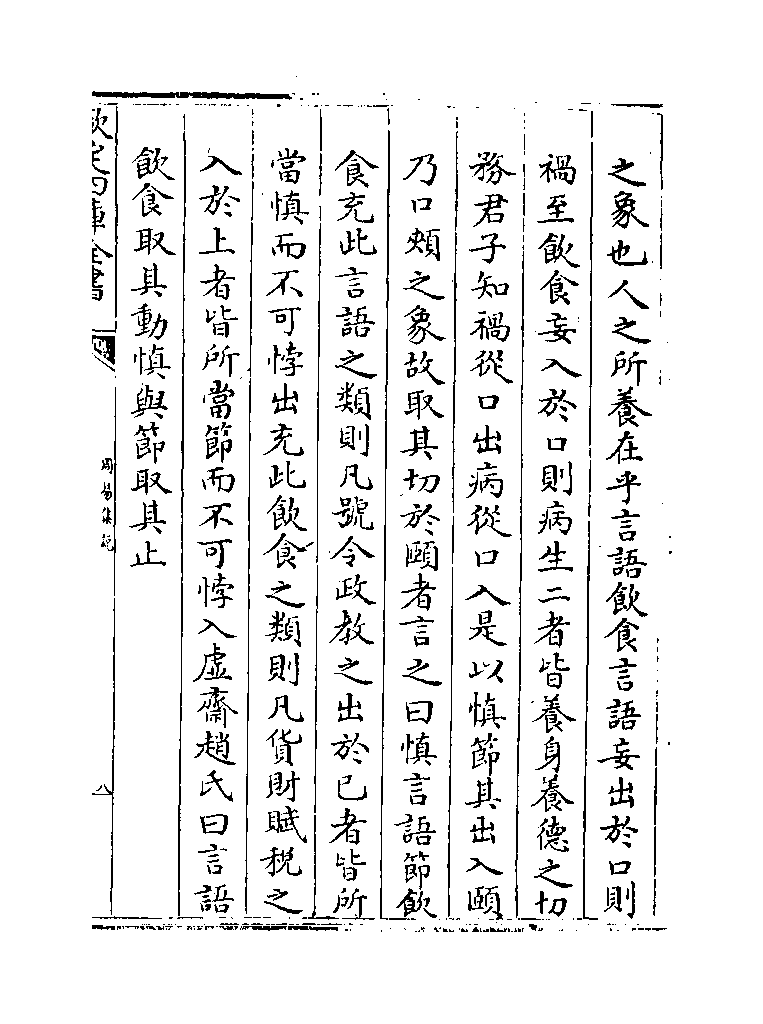 之象也人之所養在乎言語飲食言語妄出於口則
禍至飲食妄入於口則病生二者皆養身養德之切
務君子知禍從口出病從口入是以慎節其出入頤
乃口頰之象故取其切於頤者言之曰慎言語節飲
食充此言語之類則凡號令政教之出於已者皆所
當慎而不可悖出充此飲食之類則凡貨財賦稅之
入於上者皆所當節而不可悖入虛齋趙氏曰言語
飲食取其動慎與節取其止
欽定四庫全書
周易集說
八